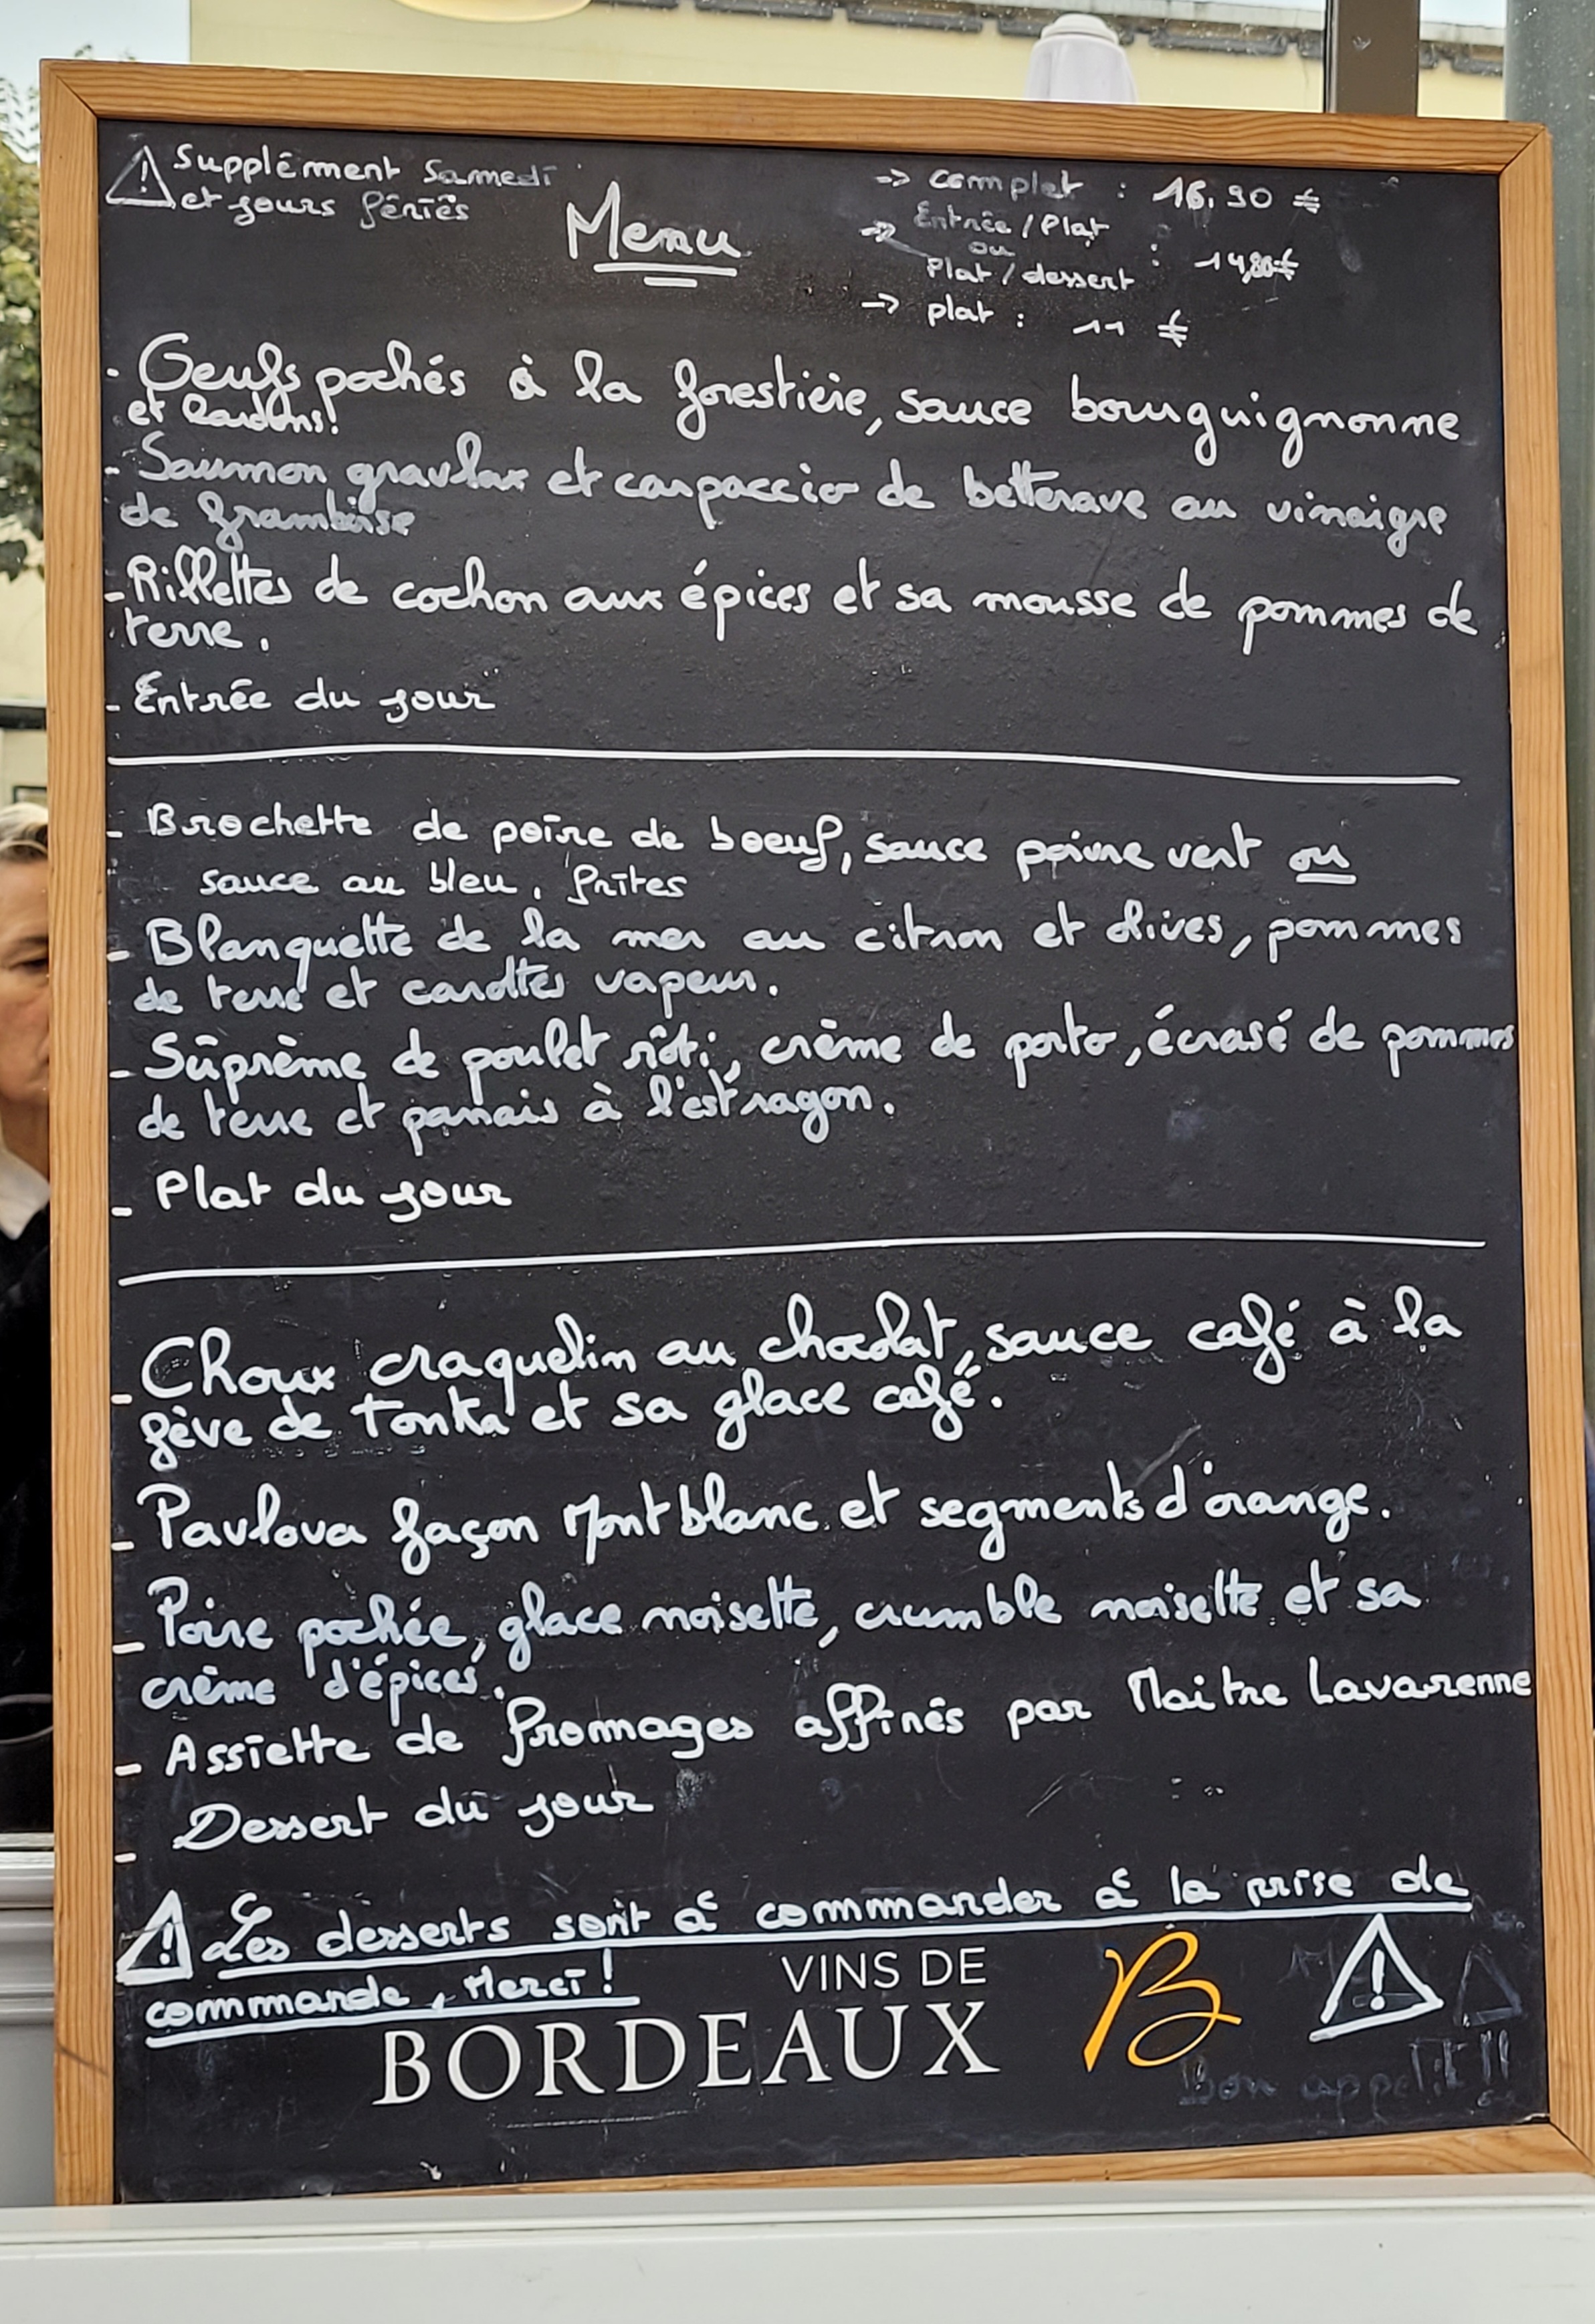 ⚠ Supplément Samedi
et jours fériés
Menu
→ complet : 16.90 €
→ Entrée / Plat
ou
Plat / dessert : 14,80€
→ plat : 11 €
- Oeufs pochés à la forestière, sauce bourguignonne
et lardons!
- Saumon gravlax et carpaccio de betterave au vinaigre
de framboise
- Rillettes de cochon aux épices et sa mousse de pommes de
terre.
- Entrée du jour
- Brochette de poire de boeuf, sauce poivre vert ou
sauce au bleu, frites
- Blanquette de la mer au citron et olives, pommes
de terre et carottes vapeur.
- Suprème de poulet rôti, crème de porto, écrasé de pommes
de terre et panais à l'estragon.
- Plat du jour
- Choux craquelin au chocolat, sauce café à la
fève de tonka et sa glace café.
- Pavlova façon Mont blanc et segments d'orange.
- Poire pochée, glace noisette, crumble noisette et sa
crème d'épices.
- Assiette de fromages affinés par Maitre Lavarenne
- Dessert du jour
⚠ Les desserts sont à commander à la prise de
commande, Merci ! ⚠
VINS DE
BORDEAUX B
Bon appetit !!